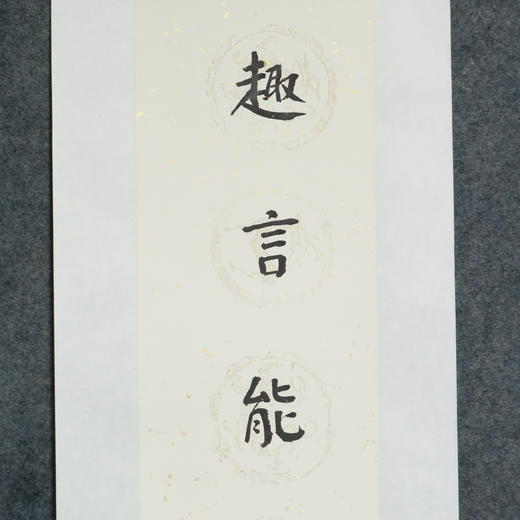 趣言能